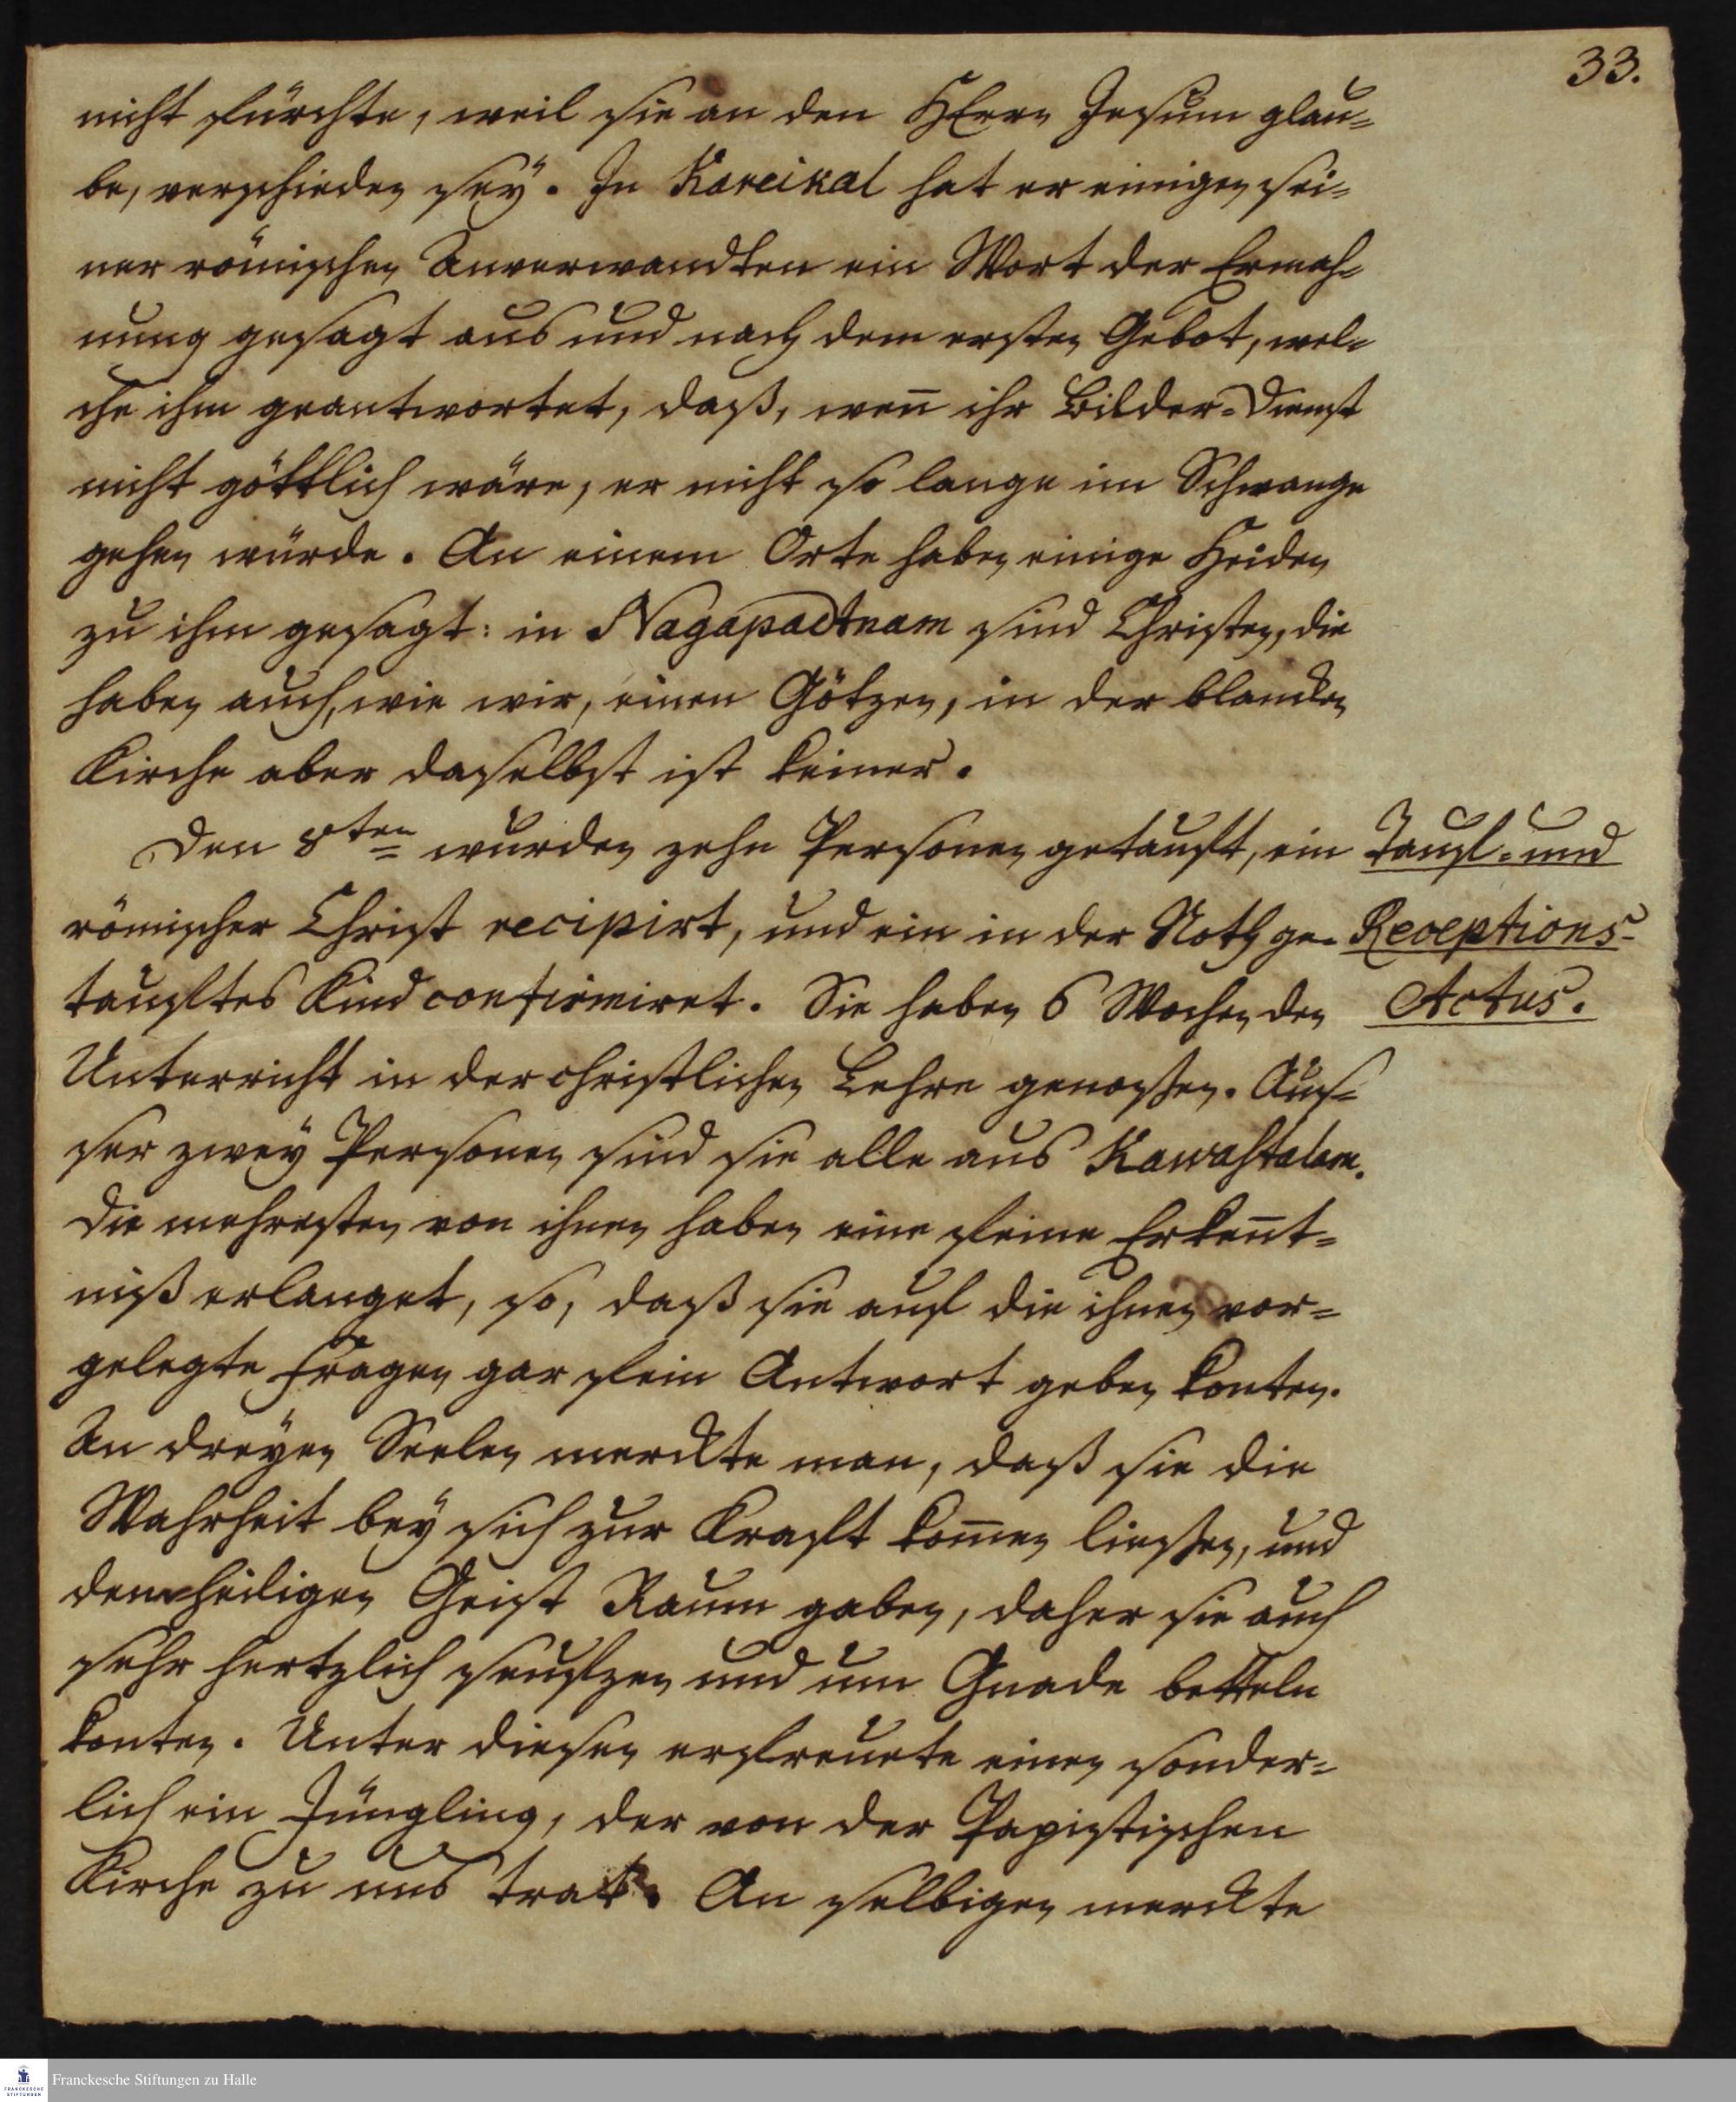 33.
nicht fürchte, weil sie an den HErrn Jesum glau-
be, verschieden sey. In Kareikal hat er einigen sei-
ner römischen Anverwandten ein Wort der Ermah-
nung gesagt aus und nach dem ersten Gebot, wel-
che ihm geantwortet, daß, weñ ihr Bilder-Dienst
nicht göttlich wäre, er nicht so lange im Schwange
gehen würde. An einem Orte haben einige Heiden
zu ihm gesagt: in Nagapadtnam sind Christen, die
haben auch, wie wir, einen Götzen, in der blancken
Kirche aber daselbst ist keiner.
Den 8ten wurden zehn Personen getauft, ein
römischer Christ recipirt, und ein in der Noth ge-
tauftes Kind confirmiret. Sie haben 6 Wochen den
Unterricht in der christlichen Lehre genossen. Aus-
ser zwey Personen sind sie alle aus Kawastalam.
Die mehresten von ihnen haben eine feine Erkeñt-
niß erlanget, so, daß sie auf die ihnen vor-
gelegte Fragen gar fein Antwort geben konten.
An dreyen Seelen merckte man, daß sie die
Wahrheit bey sich zur Kraft kom̃en liessen, und
dem heiligen Geist Raum gaben, daher sie auch
sehr hertzlich seufzen und um Gnade betteln
konten. Unter diesen erfreuete einen sonder-
lich ein Jüngling, der von der Papistischen
Kirche zu uns trat. An selbigen merckte
Tauf- und
Receptions-
Actus.
Franckesche Stiftungen zu Halle
FRANCKESCHE
STIFTUNGEN